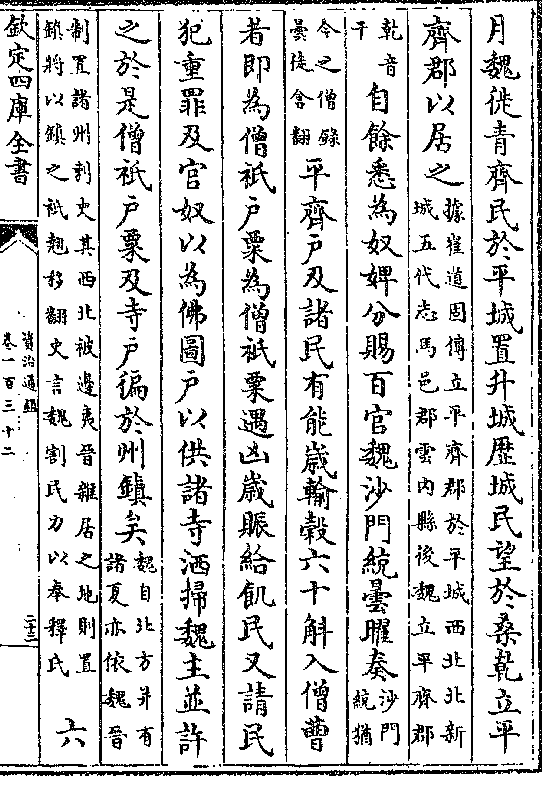 月魏徙青齊民於平城置升城歷城民望於桑乾立平
齊郡以居之據崔道固傳立平齊郡於平城西北北新
城五代志馬邑郡雲内縣後魏立平齊郡
乾音
干
自餘悉為奴婢分賜百官魏沙門統曇曜奏沙門
統猶
今之僧錄
曇徒含翻
平齊戶及諸民有能歲輸穀六十斛入僧曹
者即為僧祇戶粟為僧祇粟遇凶歲賑給飢民又請民
犯重罪及官奴以為佛圖戶以供諸寺洒掃魏主並許
之於是僧祇戶粟及寺戶徧於州鎮矣魏自北方并有
諸夏亦依魏晉
制置諸州刺史其西北被邊夷晉雜居之地則置
鎮將以鎮之祇翹移翻史言魏割民力以奉釋氏
六
欽定四庫全書
資治通鑑
卷一百三十二
二十三